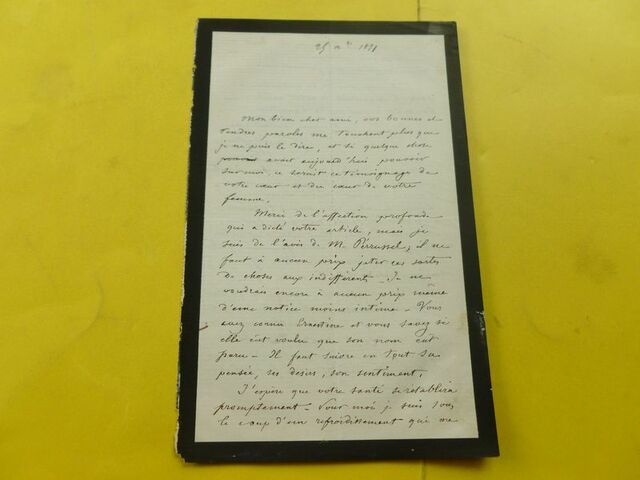 25 a 1871
Mon bien cher ami, vos bonnes et
tendres paroles me touchent plus que
je ne puis le dire, et si quelque chose
avait aujourd'hui pouvoir
sur moi, ce serait ce témoignage de
votre cœur et du cœur de votre
femme.
Merci de l'affection profonde
qui a dicté votre article, mais je
suis de l'avis de M. Pérrussel; il ne
faut à aucun prix jeter ces sortes
de choses aux indifférents. Je ne
voudrais encore à aucun prix même
d'une notice moins intime. Vous
avez connu Ernestine et vous savez si
elle eut voulu que son nom eut
paru - Il faut suivre en tout sa
pensée, ses désirs, son sentiment.
J'espère que votre santé se rétablira
promptement - Pour moi je suis sous
le coup d'un refroidissement qui me